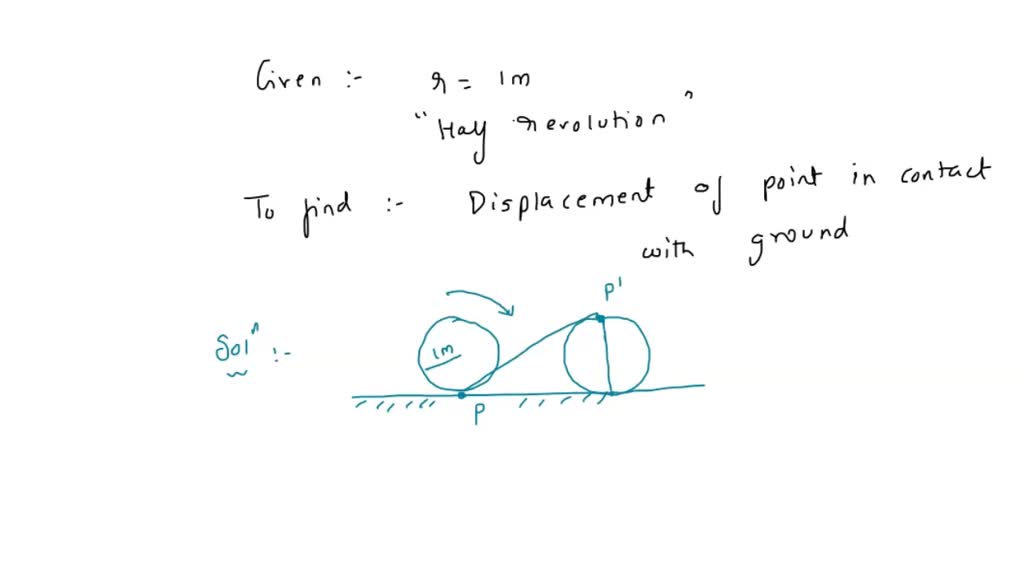 Given :- r = 1m
"Half revolution"
To find :- Displacement of point in contact
with ground
P'
Solⁿ :-
1m
P